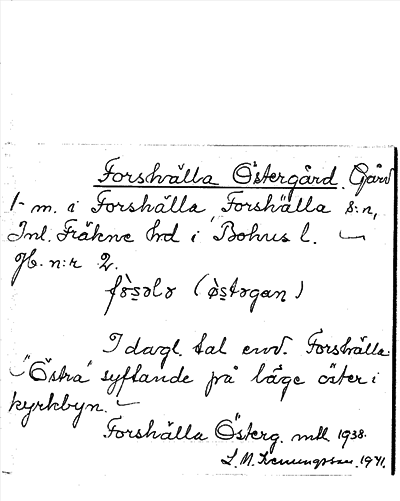 Forshälla Östergård. Gård
1 m. i Forshälla, Forshälla s:n,
Inl. Fräkne hd i Bohus l.
Jb. n:r 2.
I dagl. tal end. Forshälla.
"Östra" syftande på läge öster i
kyrkbyn.
Forshälla Österg. mtl 1938.
1941.